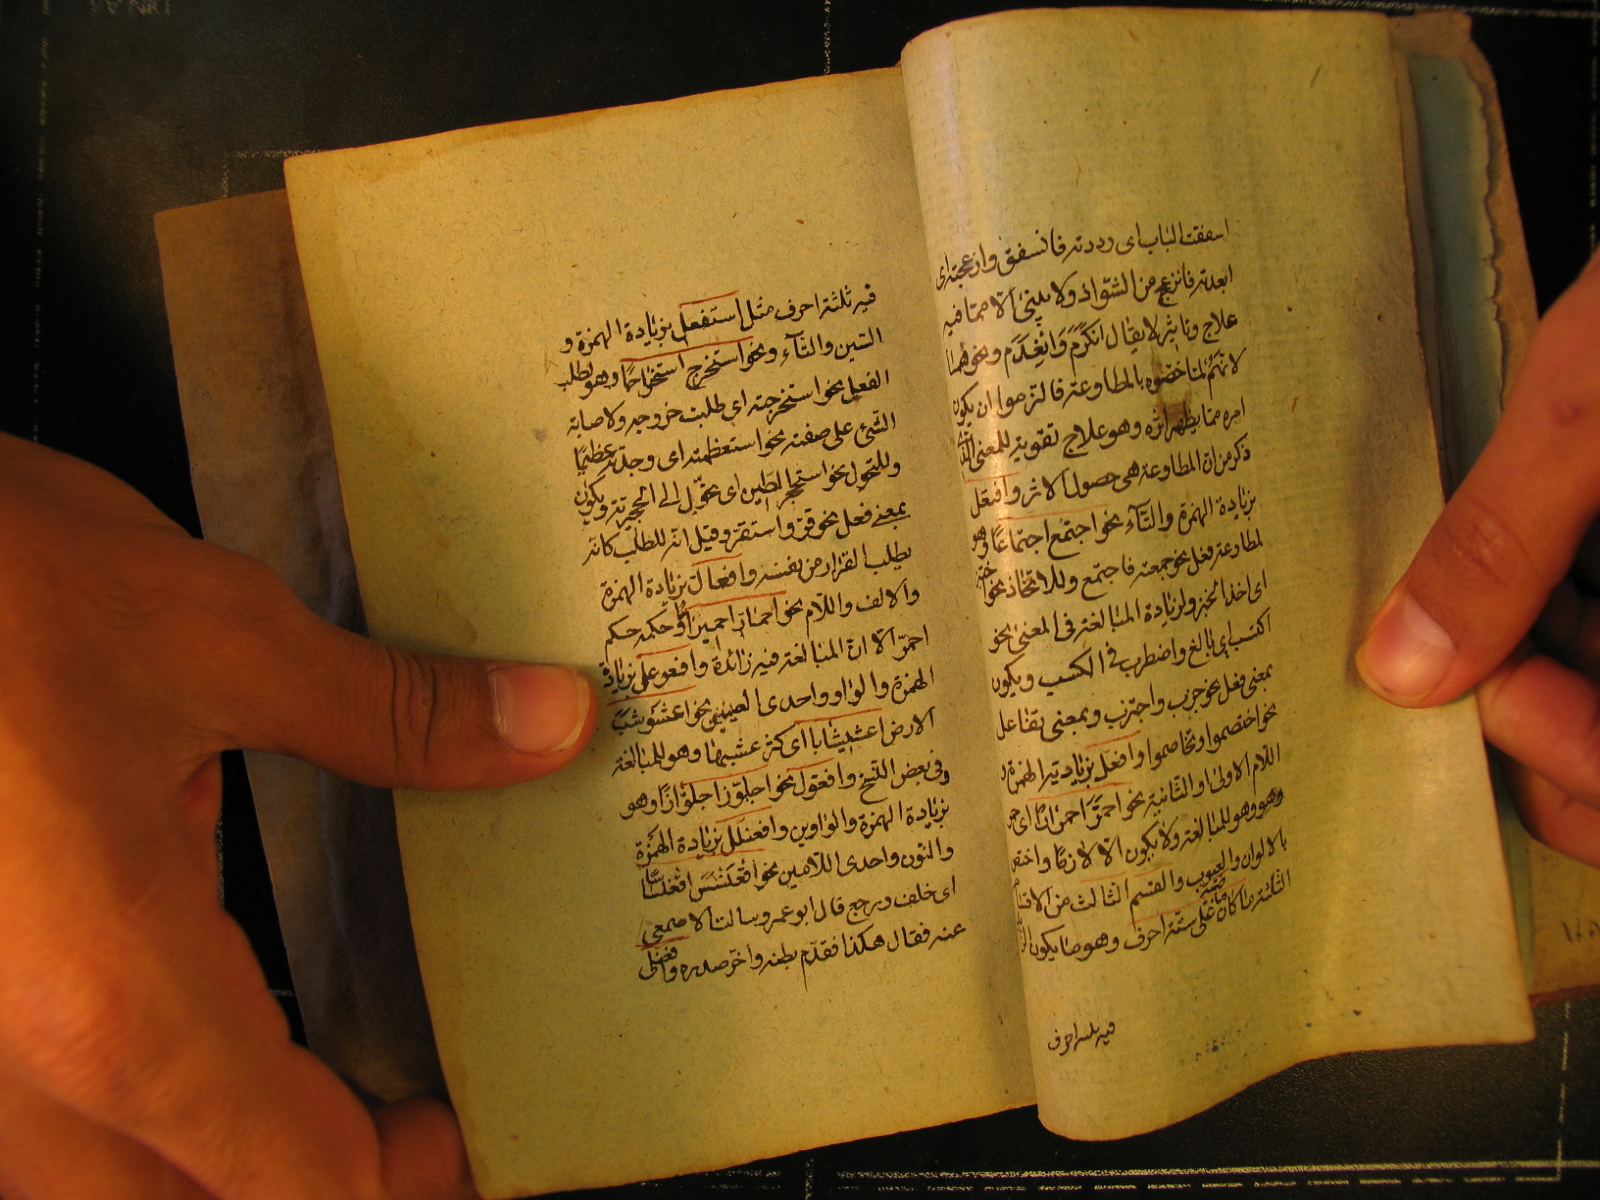 اسفقت الباب اى رددته فانسفق وازعجته اى
ابعدته فانزعج من الشواذ ولا يبنى الا مما فيه
علاج وتاثير لا يقال انكرم وانعدم ونحوهما
لانهم لما خصوه بالمطاوعة فالتزموا ان يكون
امره مما يظهر اثره وهو علاج تقوية للمعنى الذى
ذكر من ان المطاوعة هى حصول الاثر وافتعل
بزيادة الهمزة والتاء نحو اجتمع اجتماعا وهو
لمطاوعة فعل نحو جمعته فاجتمع وللاتخاذ نحو اختبز
اى اخذ الخبز ولزيادة المبالغة فى المعنى نحو
اكتسب اى بالغ واضطرب فى الكسب ويكون
بمعنى فعل نحو جذب واجتذب وبمعنى تفاعل
نحو اختصموا وتخاصموا وافعل بزيادته الهمزة و
اللام الاولى او الثانية نحو احمر احمرارا اى
وهو وهو للمبالغة ولا يكون الا لازما واختص
بالالوان والعيوب والقسم الثالث من الاقسام
الثلثة ما كان ماضيه على ستة احرف وهو ما يكون
فيه ثلثة احرف
فيه ثلثة احرف مثل استفعل بزيادة الهمزة و
السين والتاء ونحو استخرج استخراجا وهو لطلب
الفعل نحو استخرجته اى طلبت خروجه ولاصابة
الشئ على صفته نحو استعظمته اى وجدته عظيما
وللتحول نحو استحجر الطين اى تحول الى الحجرية ويكون
بمعنى فعل نحو قر واستقر وقيل انه للطلب كانه
يطلب القرار من نفسه وافعال بزيادة الهمزة
والالف واللام نحو احمار احميرارا وحكمه حكم
احمر الا ان المبالغة فيه زائدة وافعوعل بزيادة
الهمزة والواو واحدى العينين نحو اعشوشب
الارض اعشيشابا اى كثر عشبها وهو للمبالغة
وفى بعض النسخ وافعول نحو اجلوز اجلوازا وهو
بزيادة الهمزة والواوين وافعنلل بزيادة الهمزة
والنون واحدى اللامين نحو اقعنسس اقعنساسا
اى خلف ورجع قال ابو عمرو سالت الاصمعى
عنه فقال هكذا فقدم بطنه واخر صدره وافعنلى